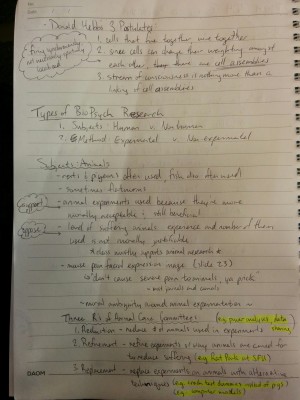 - Donald Hebb's 3 Postulates
1. cells that fire together, wire together
2. since cells can change their weighting amongst
each other, these become cell assemblies
3. stream of consciousness is nothing more than a
linking of cell assemblies
Types of BioPsych Research
1. Subjects: Human v. Nonhuman
2. Method: Experimental v. Non experimental
Subjects: Animals
- rats & pigeons often used, fish also often used
- sometimes
support
- animal experiments used because they're more
morally acceptable & still beneficial
oppose
- level of suffering animals experience and number of them
used is not morally justifiable
* class mostly supports animal research *
- mouse pain facial expression image (slide 23)
"don't cause severe pain to animals, ya pricks"
- moral ambiguity around animal experimentation -
Three R's of Animal Care Committees
(eg. power analysis, data sharing)
1. Reduction - reduce # of animals used in experiments
2. Refinement - refine experiments & way animals are cared for
to reduce suffering (eg. Rat Park at SFU)
3. Replacement - replace experiments on animals with alternative
techniques (eg. crash test dummies instead of pigs)
(eg. computer models)